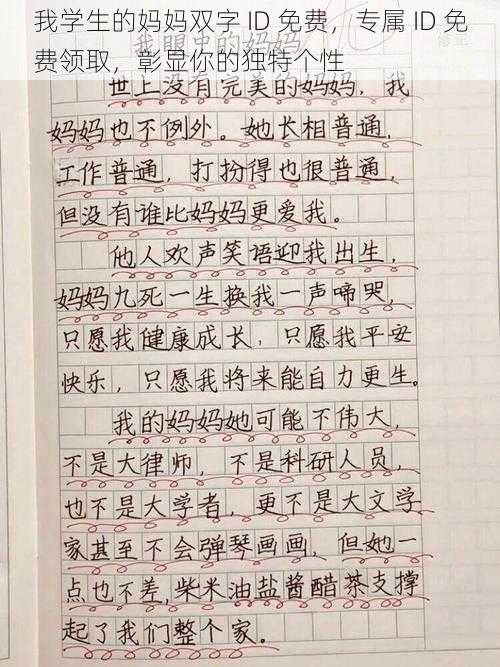 我学生的妈妈双字 ID 免费，专属 ID 免
费领取，彰显你的独特个性
我眼中的妈妈
修正
世上没有完美的妈妈，我
妈妈也不例外。她长相普通，
工作普通，打扮得也很普通，
但没有谁比妈妈更爱我。
他人欢声笑语迎我出生，
妈妈九死一生换我一声啼哭，
只愿我健康成长，只愿我平安
快乐，只愿我将来能自力更生。
我的妈妈她可能不伟大，
不是大律师，不是科研人员，
也不是大学者，更不是大文学
家甚至不会弹琴画画，但她一
点也不差，柴米油盐酱醋茶支撑
起了我们整个家。